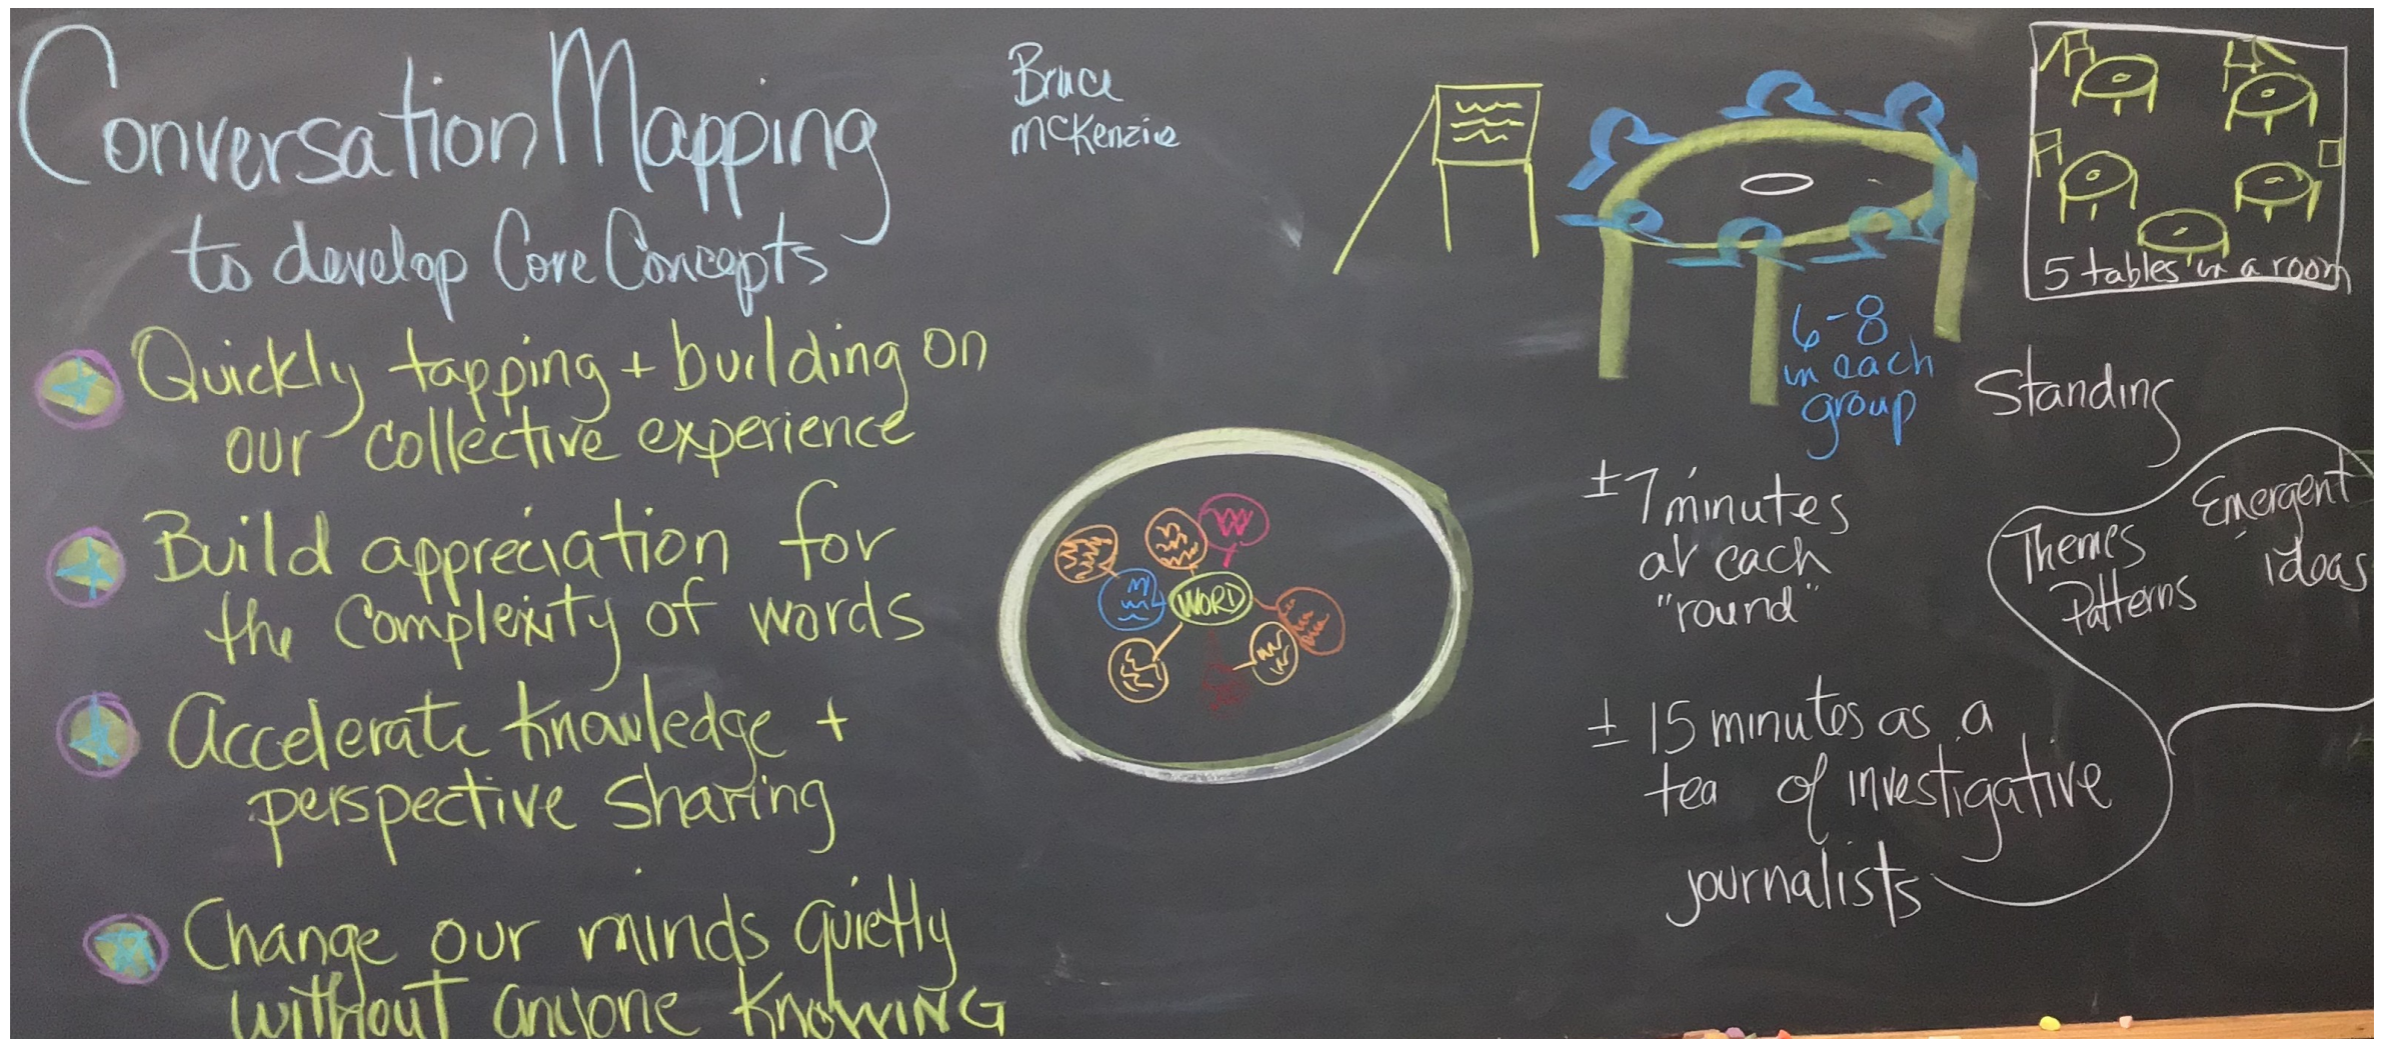 Conversation Mapping
to develop Core Concepts
Quickly tapping + building on
our collective experience
Build appreciation for
the complexity of words
Accelerate knowledge +
perspective sharing
Change our minds quietly
without anyone KNOWING
Bruce
McKenzie
WORD
6-8
in each
group
5 tables in a room
Standing
±7 minutes
at each
"round"
± 15 minutes as a
tea of investigative
journalists
Themes
Patterns
Emergent
ideas